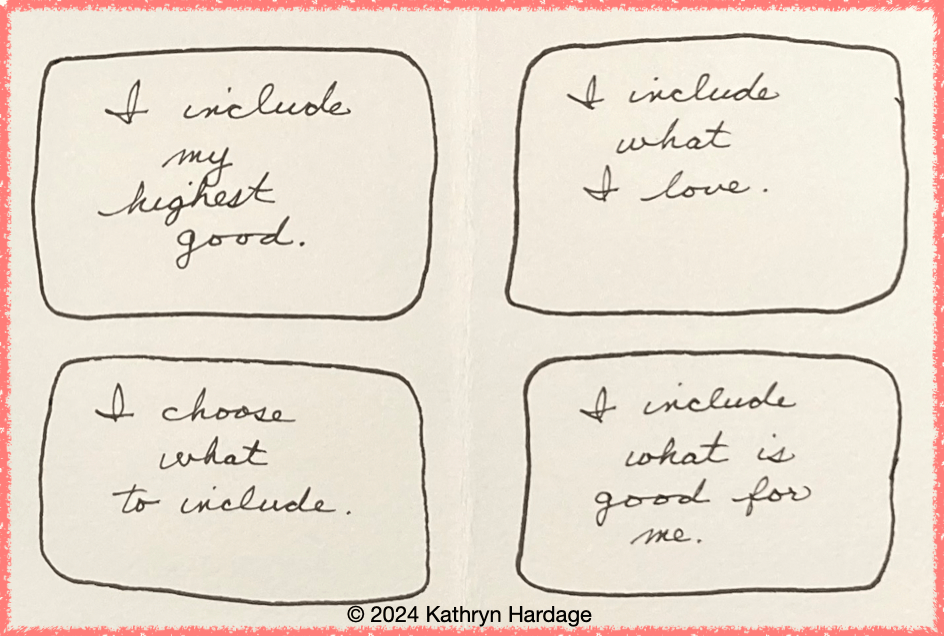 I include
my
highest
good.
I include
what
I love.
I choose
what
to include.
I include
what is
good for
me.
© 2024 Kathryn Hardage